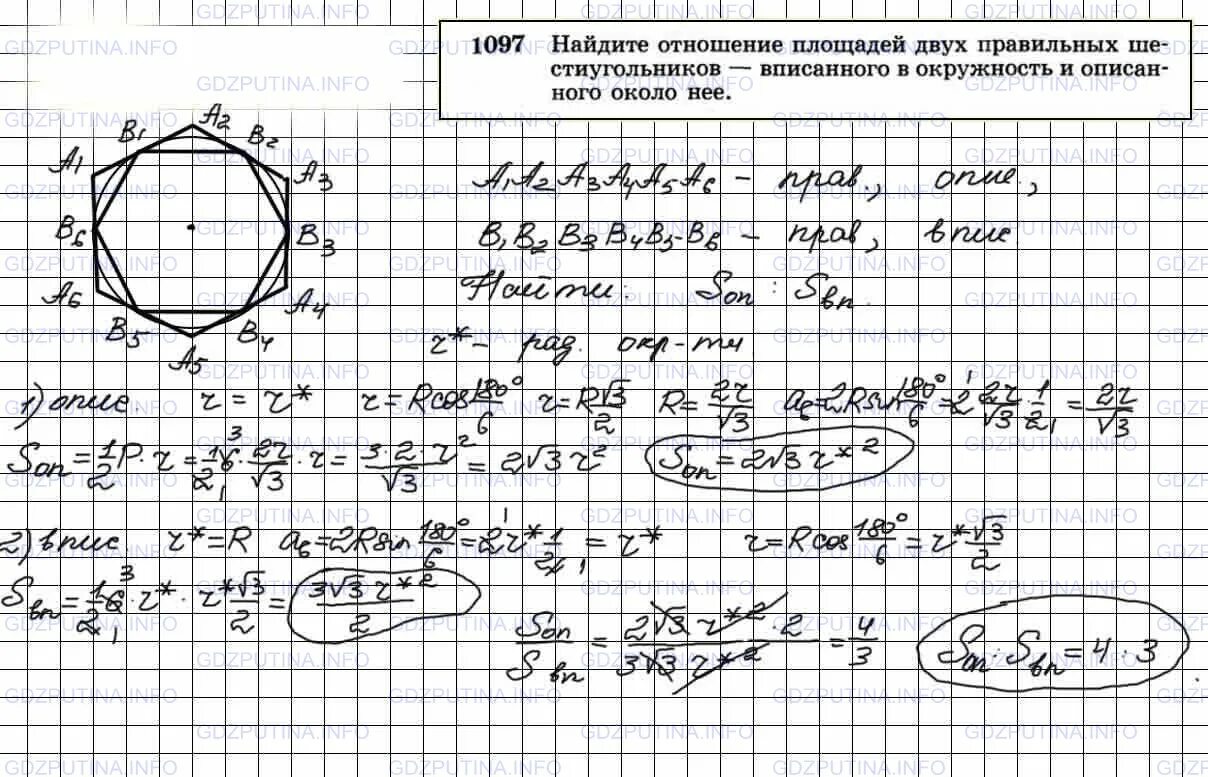 1097 Найдите отношение площадей двух правильных ше-
стиугольников — вписанного в окружность и описан-
ного около нее.
A₁ B₁ A₂ B₂ A₃ B₃ A₄ B₄ A₅ B₅ A₆ B₆
A₁A₂A₃A₄A₅A₆ – прав., опис.,
B₁B₂B₃B₄B₅B₆ – прав, впис.
Найти: Sоп : Sвп.
r* – рад. окр-ти
1) опис. r = r* r = Rcos 180°/6 r = R√3/2 R = 2r/√3 a₆=2Rsin 180°/6 = 2 · 2r/√3 · 1/2 = 2r/√3
Sоп = 1/2 P · r = 1/2 · 6 · 2r/√3 · r = 3·2·r²/√3 = 2√3 r² Sоп = 2√3 r*²
2) впис. r* = R a₆=2Rsin 180°/6 = 2r* 1/2 = r* r = Rcos 180°/6 = r* √3/2
Sвп = 1/2 · 6 · r* · r*√3/2 = 3√3 r*²/2
Sоп/Sвп = 2√3 r*² · 2/3√3 r*² = 4/3 Sоп : Sвп = 4 : 3
GDZPUTINA.INFO